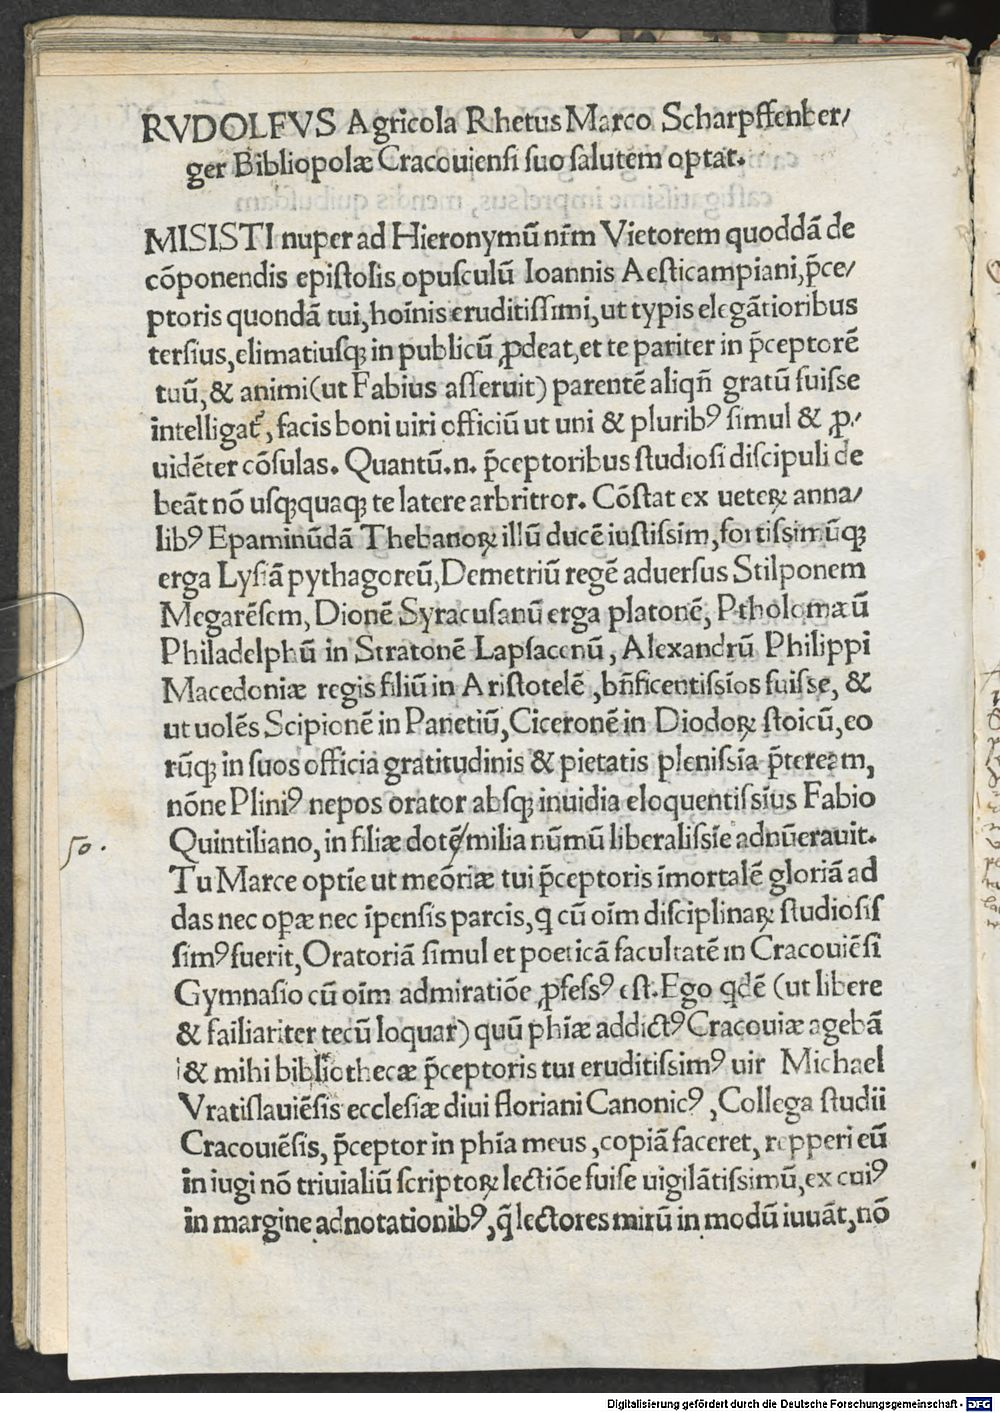 RVDOLFVS Agricola Rhetus Marco Scharpffenber/
ger Bibliopolæ Cracouiensi suo salutem optat.
MISISTI nuper ad Hieronymū nr̄m Vietorem quoddā de
cōponendis epistolis opusculū Ioannis Aesticampiani, p̄ce/
ptoris quondā tui, hoīnis eruditissimi, ut typis elegātioribus
tersius, elimatiusqꝫ in publicū ꝓdeat, et te pariter in p̄ceptorē
tuū, & animi (ut Fabius asseruit) parentē aliqn̄ gratū fuisse
intelligat᷑, facis boni uiri officiū ut uni & pluribꝰ simul & ꝓ/
uidēter cōsulas. Quantū .n. p̄ceptoribus studiosi discipuli de
beāt nō usqꝫquaqꝫ te latere arbritror. Cōstat ex ueteꝝ anna/
libꝰ Epaminūdā Thebanoꝝ illū ducē iustissim, fortissimūqꝫ
erga Lysiā pythagoreū, Demetriū regē aduersus Stilponem
Megarēsem, Dionē Syracusanū erga platonē, Ptholomæū
Philadelphū in Stratonē Lapsacenū, Alexandrū Philippi
Macedoniæ regis filiū in Aristotelē, bn̄ficentissīos fuisse, &
ut uolēs Scipionē in Panetiū, Ciceronē in Diodoꝝ stoicū, eo
rūqꝫ in suos officia gratitudinis & pietatis plenissīa p̄teream,
nōne Pliniꝰ nepos orator absqꝫ inuidia eloquentissīus Fabio
50. Quintiliano, in filiæ dotē/milia nūmū liberalissīe adnūerauit.
Tu Marce optīe ut meōriæ tui p̄ceptoris īmortalē gloriā ad
das nec oꝑæ nec īpensis parcis, q̱ cū oīm disciplinaꝝ studiosis
simꝰ fuerit, Oratoriā simul et poeticā facultatē in Cracouiēsi
Gymnasio cū oīm admiratiōe ꝓfessꝰ est. Ego q̇dē (ut libere
& failiariter tecū loquar) quū phīæ addictꝰ Cracouiæ agebā
& mihi bibliothecæ p̄ceptoris tui eruditissimꝰ uir Michael
Vratislauiēsis ecclesiæ diui floriani Canonicꝰ, Collega studii
Cracouiēsis, p̄ceptor in phīa meus, copiā faceret, repperi eū
in iugi nō triuialiū scriptoꝝ lectiōe fuise uigilātissimū, ex cuiꝰ
in margine adnotationibꝰ, q̄ lectores mirū in modū iuuāt, nō
Digitalisierung gefördert durch die Deutsche Forschungsgemeinschaft - DFG